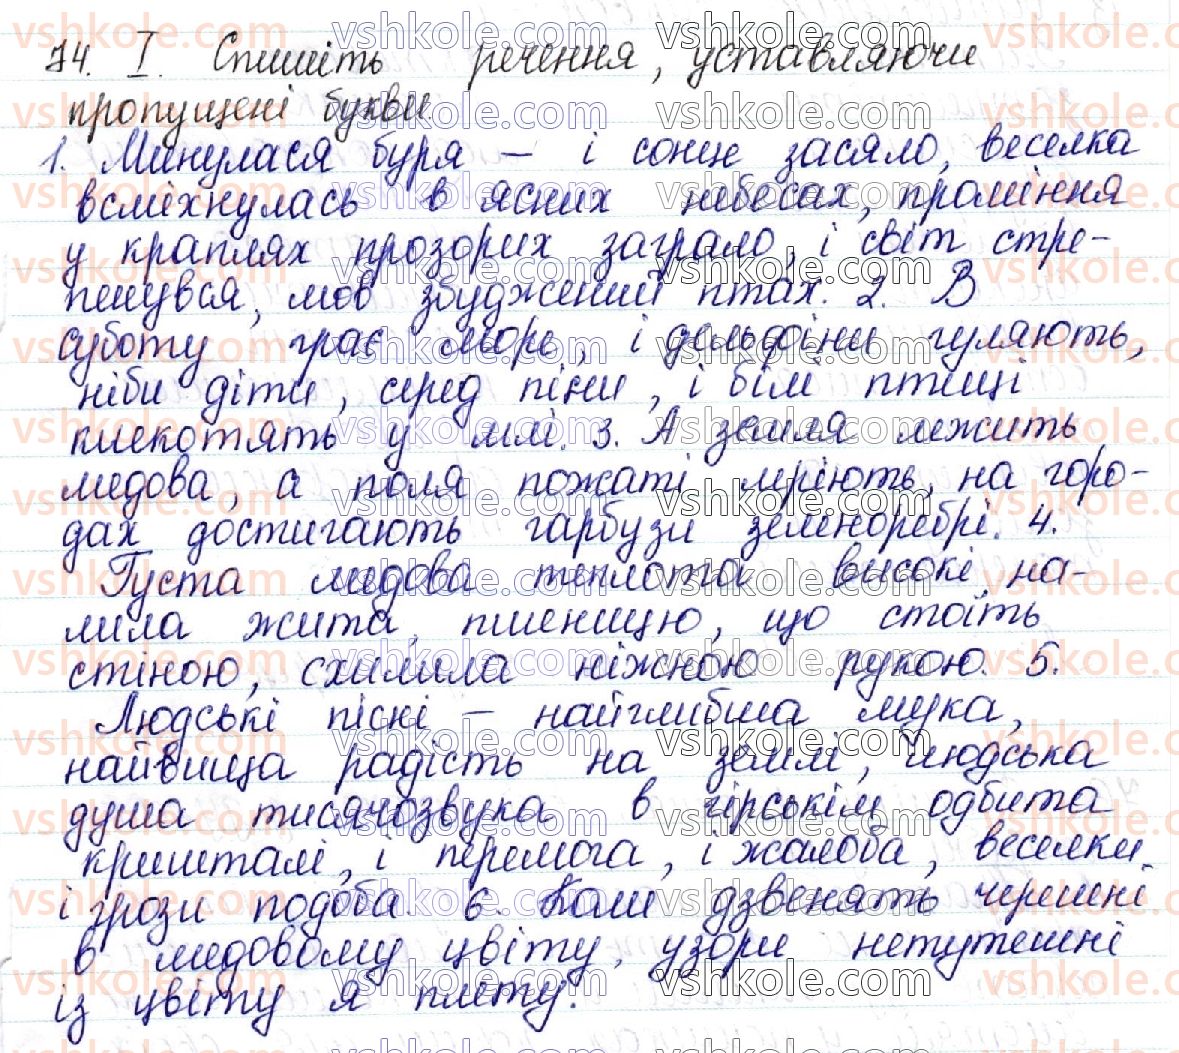 74. I. Спишіть речення, уставляючи
пропущені букви
1. Минулася буря – і сонце засяло, веселка
всміхнулась в ясних небесах, проміння
у краплях прозорих заграло, і світ стре-
пенувся, мов збуджений птах. 2. В
суботу грає море, і дельфіни гуляють,
ніби діти, серед піни, і білі птиці
кигкотять у млі. 3. А земля лежить
медова, а поля пожаті мріють, на горо-
дах достигають гарбузи зеленоребрі. 4.
Густа медова теплота високі на-
лила жита, пшеницю, що стоїть
стіною, схилила ніжною рукою. 5.
Людські пісні – найглибша мука,
найвища радість на землі, людська
душа тисячозвука в гірськім одбита
кришталі, і перемога, і жалоба, веселки
і грози подоба. 6. Коли дзвенять черешні
в медовому цвіту, узори нетутешні
із цвіту я плету.
vshkole.com